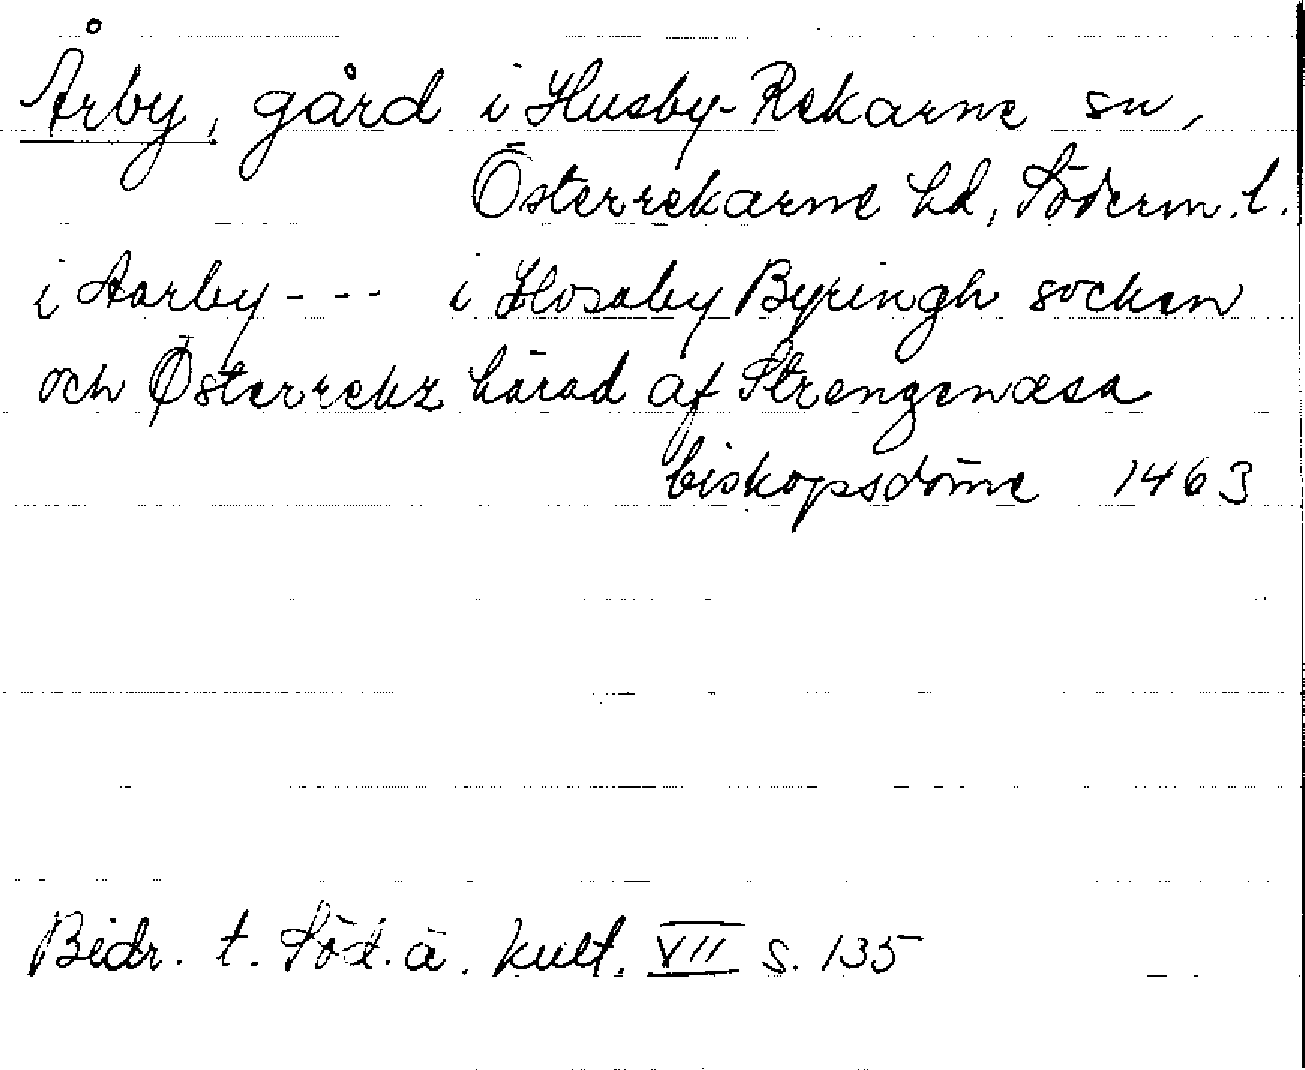 Årby, gård i Husby-Rekarne sn,
Österrekarne hd, Söderm. l.
i Aarby - - - i Hosaby Byringh socken
och Østerrekz härad af Strengenæsa
biskopsdöme 1463
Bidr. t. Söd. ä. kult. VII s. 135